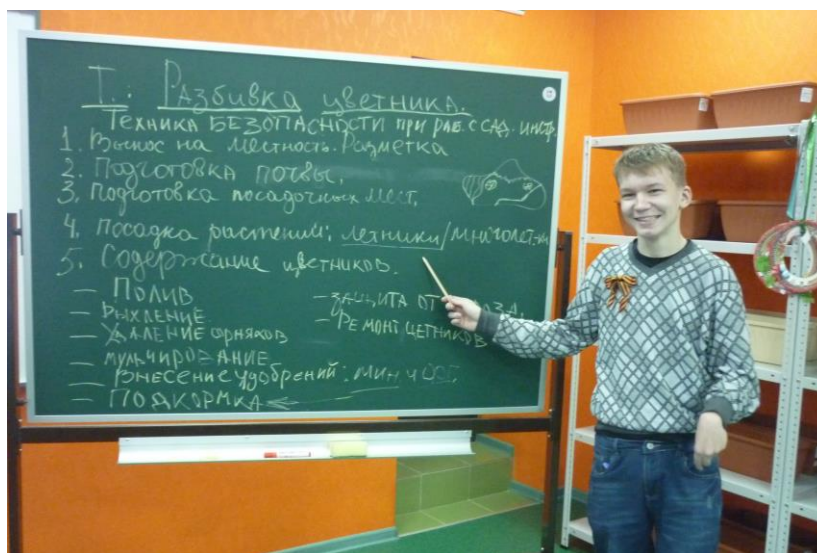 I. Разбивка цветника.
Техника БЕЗОПАСНОСТИ при раб. с сад. инстр.
1. Вынос на местность. Разметка
2. Подготовка почвы.
3. Подготовка посадочных мест.
4. Посадка растений: летники/многолет-ки
5. Содержание цветников.
– Полив
– Рыхление
– Удаление сорняков
– мульчирование
– Внесение удобрений: мин
– ПОДКОРМКА
– защита от
– Ремонт цетников